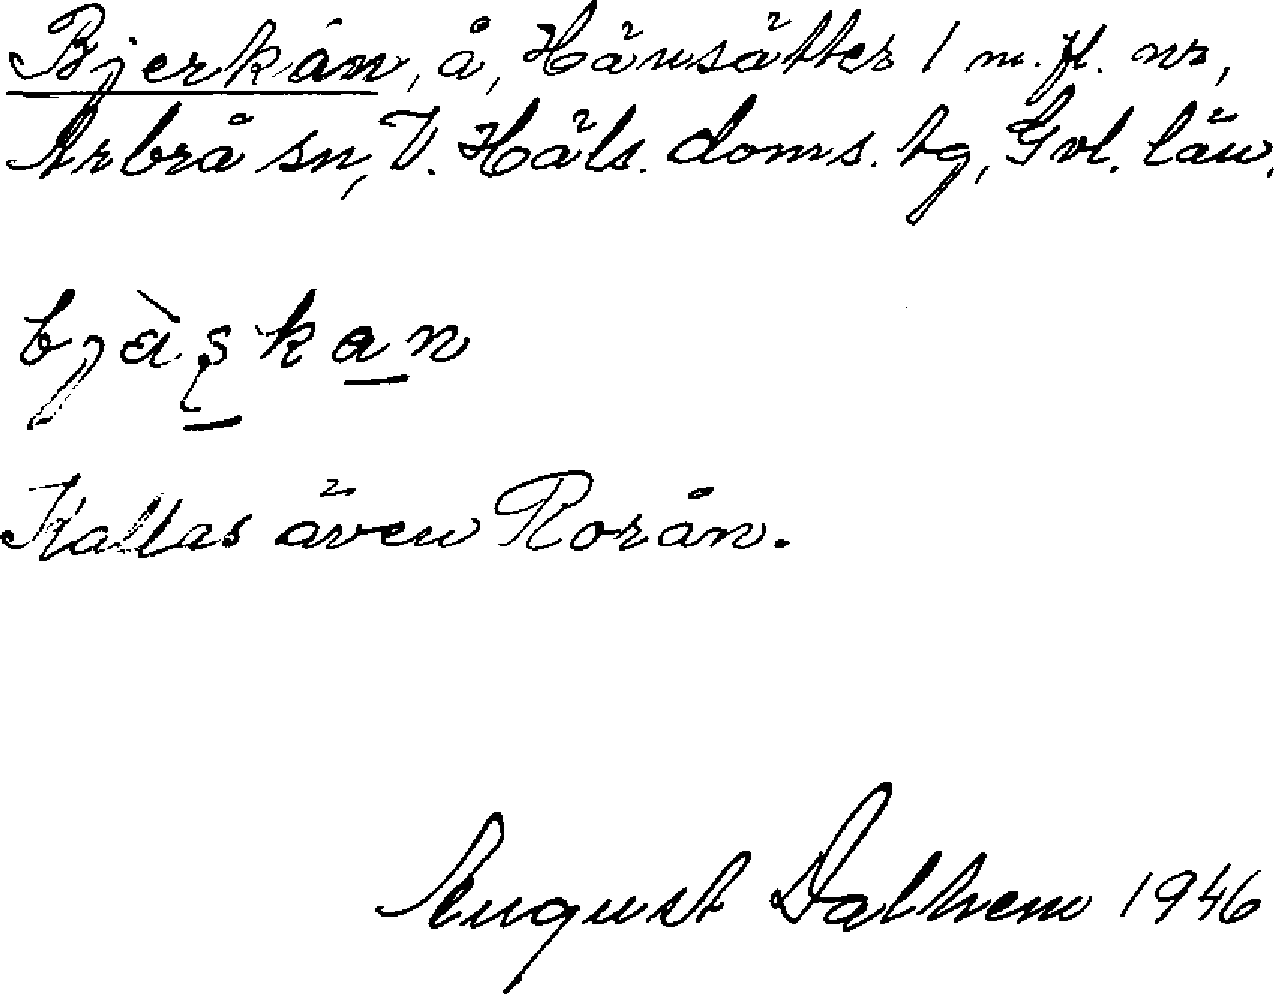 Bjerkån, å, Hänsätter 1 m. fl. nr,
Arbrå sn, V. Häls. doms. tg, Gvl. län.
bjàʂkan
Kallas även Rorån.
August Dalhem 1946